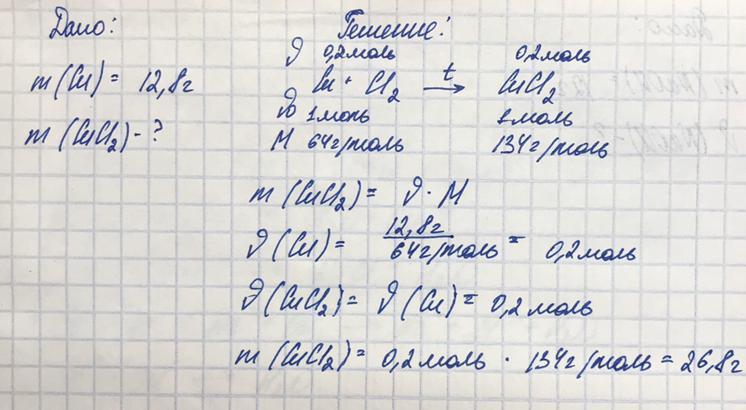 Дано:
m(Cu) = 12,8г
m(CuCl2) - ?
Решение:
ν 0,2моль 0,2моль
Cu + Cl2 t→ CuCl2
ν0 1моль 1моль
M 64г/моль 134г/моль
m(CuCl2) = ν · M
ν(Cu) = 12,8г / 64г/моль = 0,2моль
ν(CuCl2) = ν(Cu) = 0,2моль
m(CuCl2) = 0,2моль · 134г/моль = 26,8г